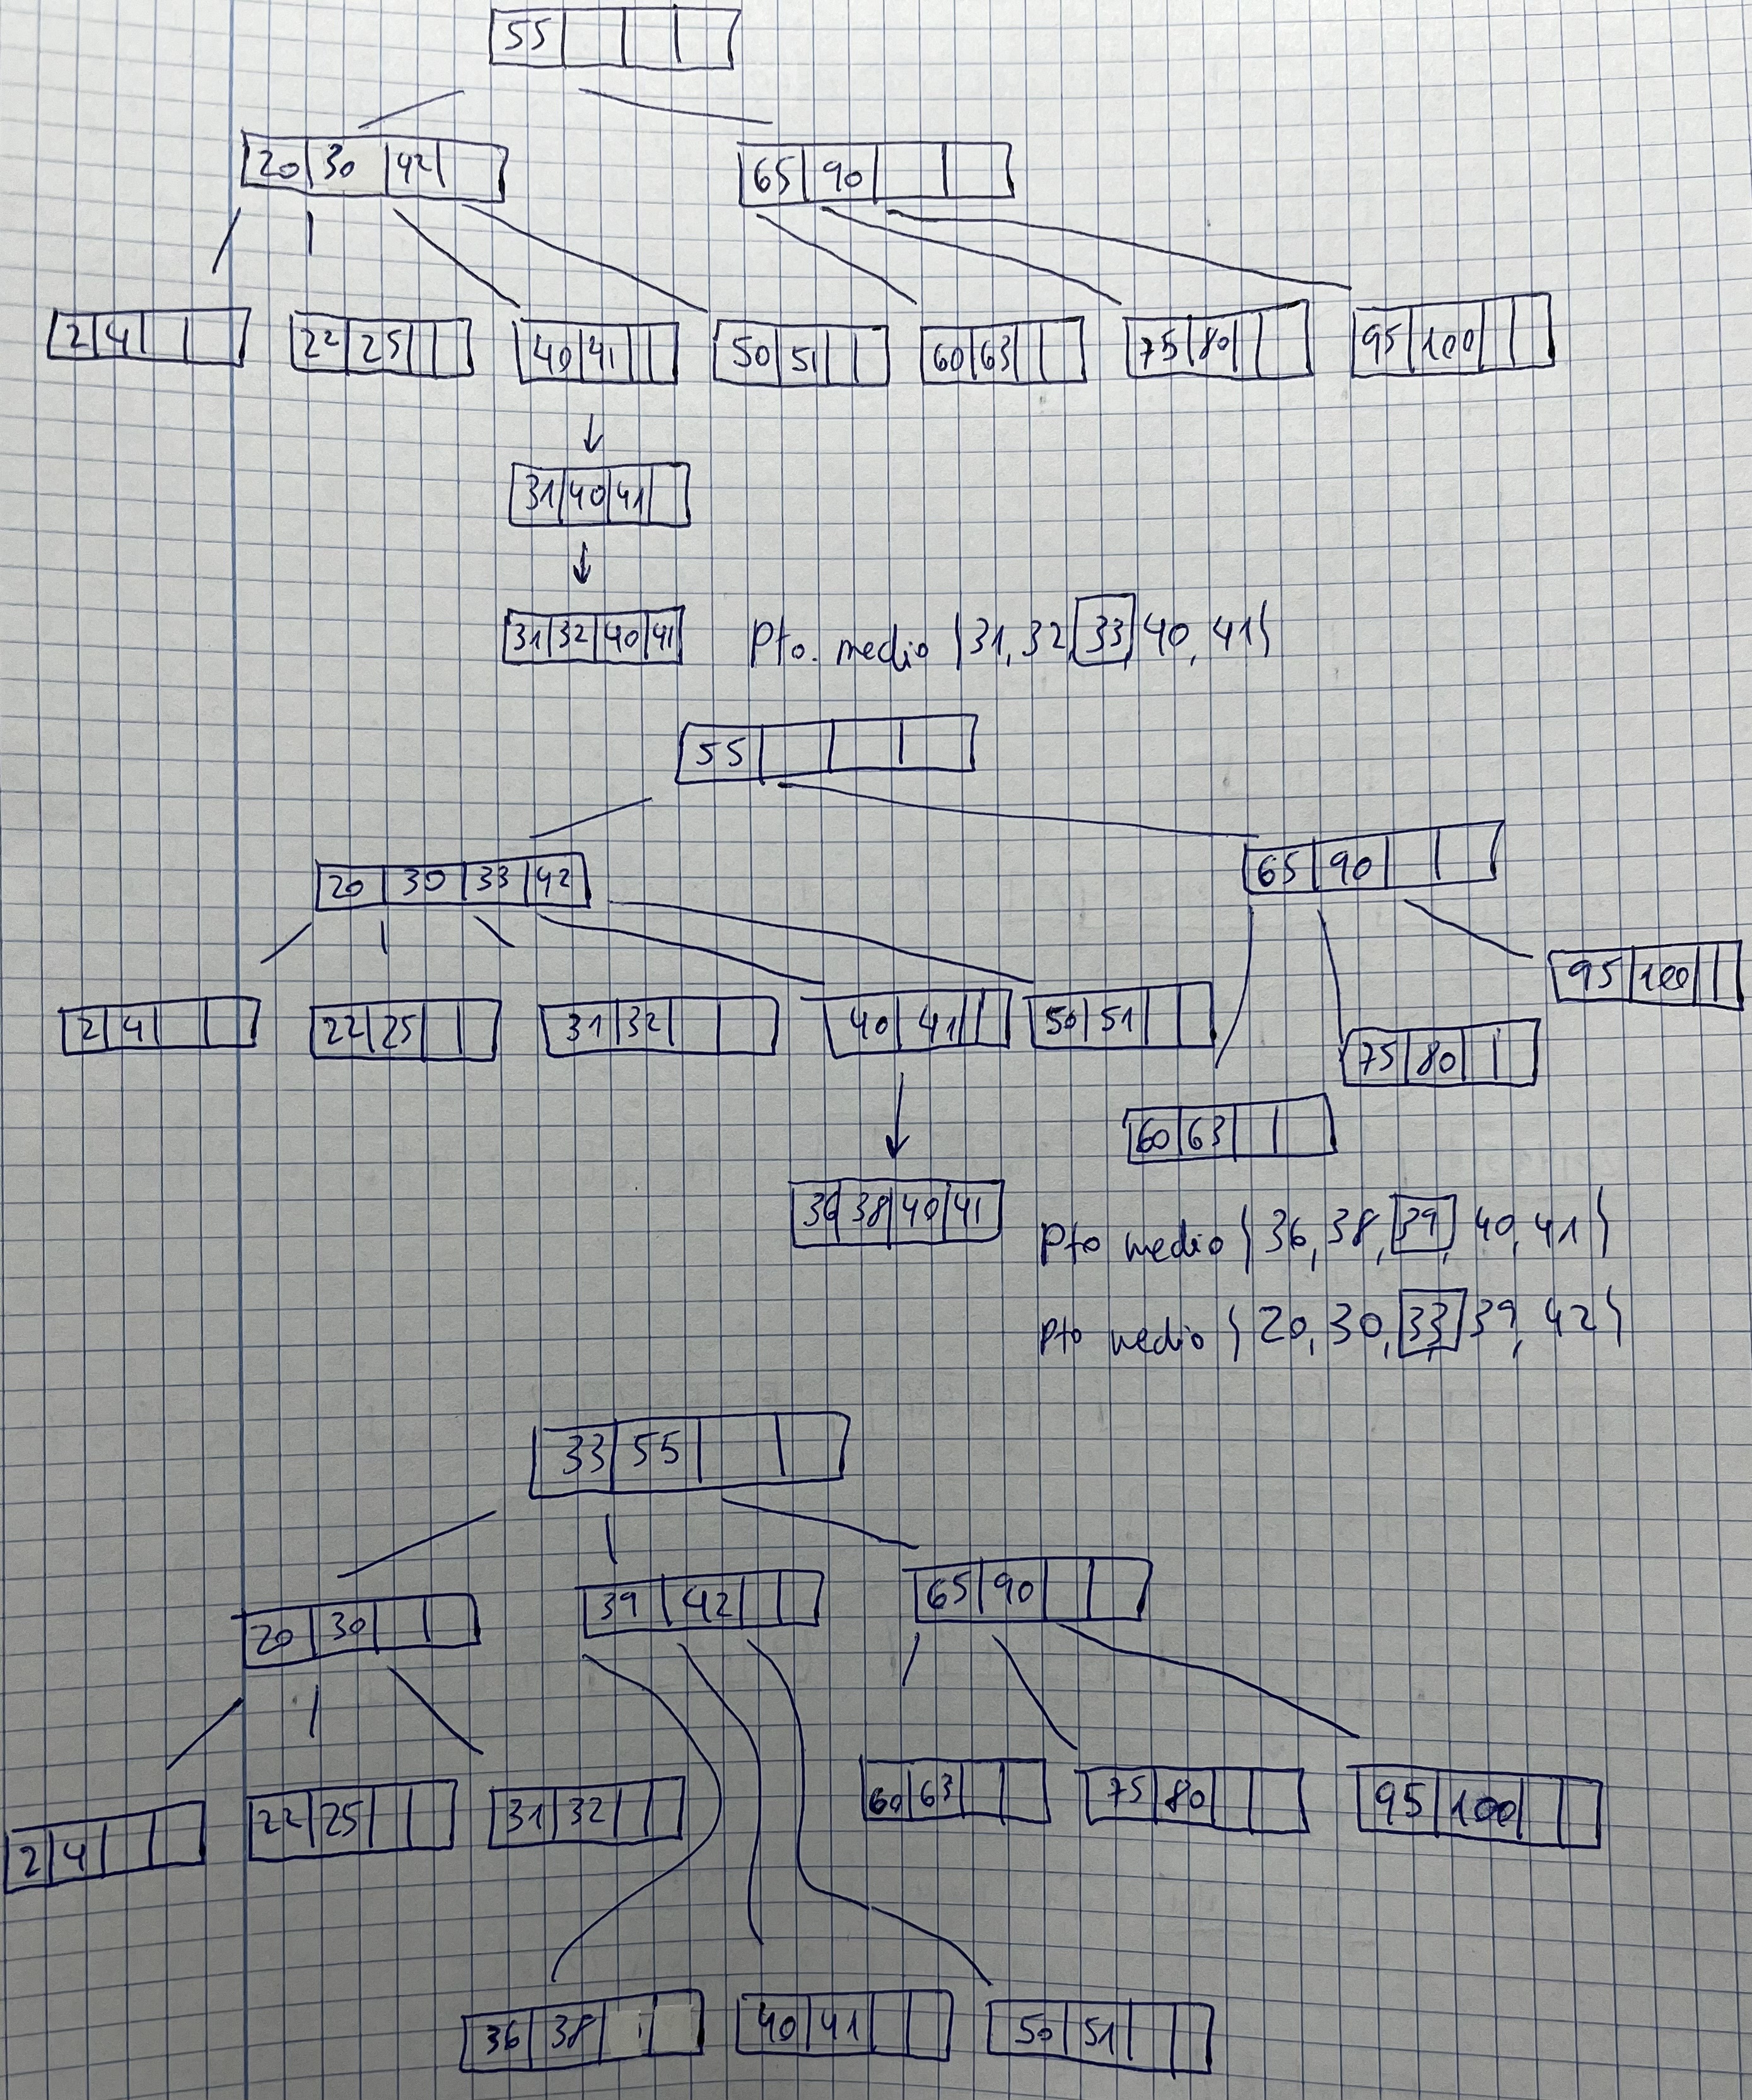 55
20 30 42
65 90
2 4
22 25
40 41
50 51
60 63
75 80
95 100
31 40 41
31 32 40 41
Pto. medio {31, 32, 33, 40, 41}
55
20 30 33 42
65 90
2 4
22 25
31 32
40 41
50 51
95 100
75 80
60 63
36 38 40 41
Pto medio {36, 38, 39, 40, 41}
Pto medio {20, 30, 33, 39, 42}
33 55
20 30
39 42
65 90
2 4
22 25
31 32
60 63
75 80
95 100
36 38
40 41
50 51